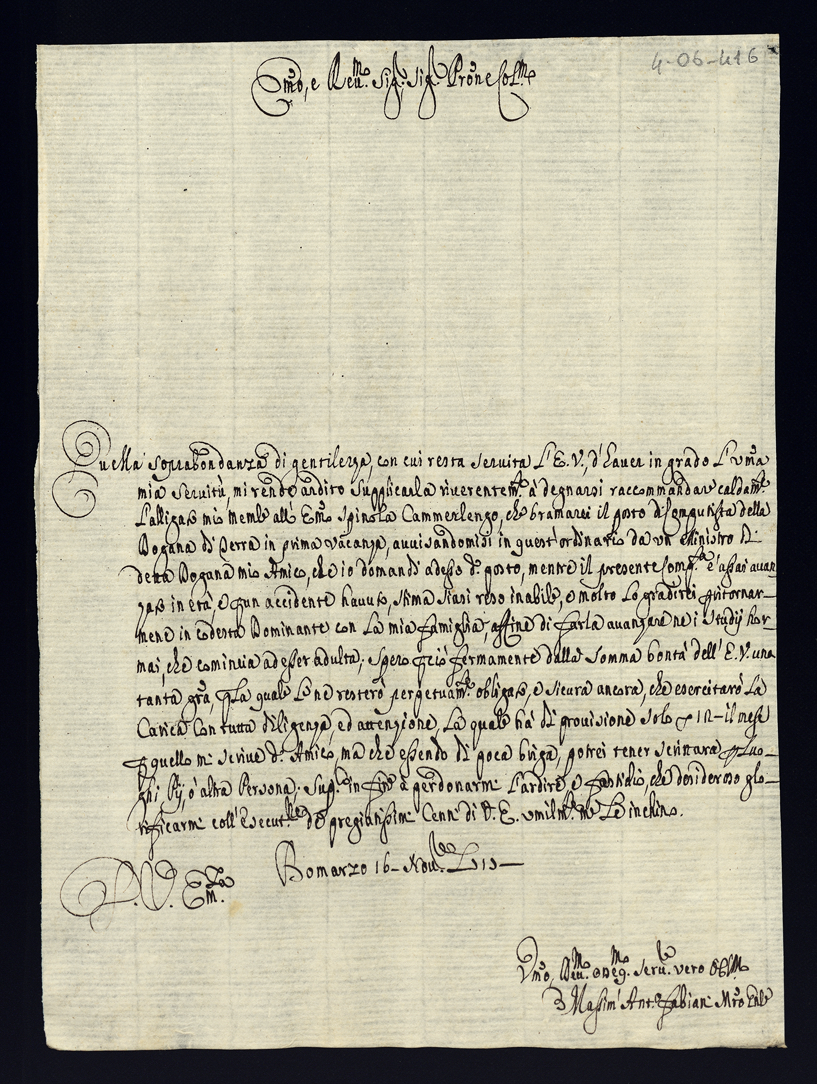 4-06-416
Emo, e Reu.mo Sig.r Sig.r Prone Col.mo
Quella soprabondanza di gentilezza, con cui resta seruita l'E.V., d'hauer in grado l'vma
mia Seruitù, mi rende ardito supplicarla riuerentem.te à degnarsi raccommandar caldam.te
l'alligato mio memle all' Emo Spinola Cammerlengo, che bramarei il posto di Computista della
Dogana di Terra in prima vacanza, auuisandomisi in quest'ordinario da vn Ministro di
detta Dogana mio Amico, che io domandi adesso d.o posto, mentre il presente Comp.ta è assai auan
zato in età, e p un accidente hauuto, stima siasi reso inabile, e molto lo gradirei p ritornar-
mene in codesta Dominante con la mia famiglia, affine di farla auanzare ne i Studij hor-
mai, che comincia ad esser adulta; Spero p ciò fermamente dalla somma bontà dell' E.V. una
tanta gra, p la quale le ne resterò perpetuam.te obligato, e sicura ancora, che esercitarò la
Carica con tutta diligenza, ed attenzione, la quale hà di prouisione solo 12 - il mese
p quello mi scriue d.o Amico, ma che essendo di poca briga, potrei tener scrittura p Luo-
ghi Pij, ò altra Persona; Sup.co in fine à perdonarmi l'ardire, e fastidio, che desideroso glo-
rificarmi coll'esecut.ne de pregiatissimi Cenni di V.E. vmilm.te me le inchino.
Bomarzo 16 - Nou.bre 1715 -
D. V. Em.za
Vmo, Deu.mo Obleg.mo Seru.re vero
Massim' Ant.o Fabiani Mro